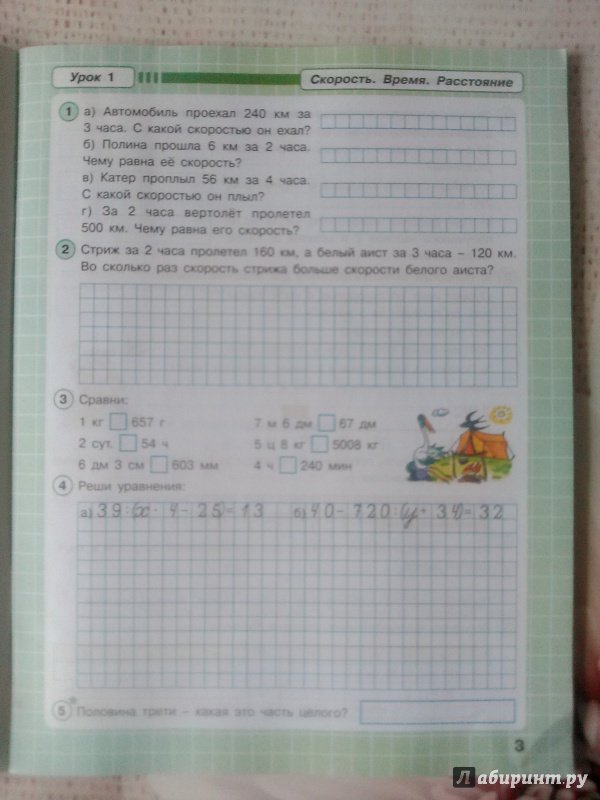 Урок 1
Скорость. Время. Расстояние
1 а) Автомобиль проехал 240 км за
3 часа. С какой скоростью он ехал?
б) Полина прошла 6 км за 2 часа.
Чему равна её скорость?
в) Катер проплыл 56 км за 4 часа.
С какой скоростью он плыл?
г) За 2 часа вертолёт пролетел
500 км. Чему равна его скорость?
2 Стриж за 2 часа пролетел 160 км, а белый аист за 3 часа – 120 км.
Во сколько раз скорость стрижа больше скорости белого аиста?
3 Сравни:
1 кг 657 г 7 м 6 дм 67 дм
2 сут. 54 ч 5 ц 8 кг 5008 кг
6 дм 3 см 603 мм 4 ч 240 мин
4 Реши уравнения:
а) 39 : (x · 4 – 25) = 13 б) 40 – 720 : (y + 34) = 32
5* Половина трети – какая это часть целого?
3
Лабиринт.ру